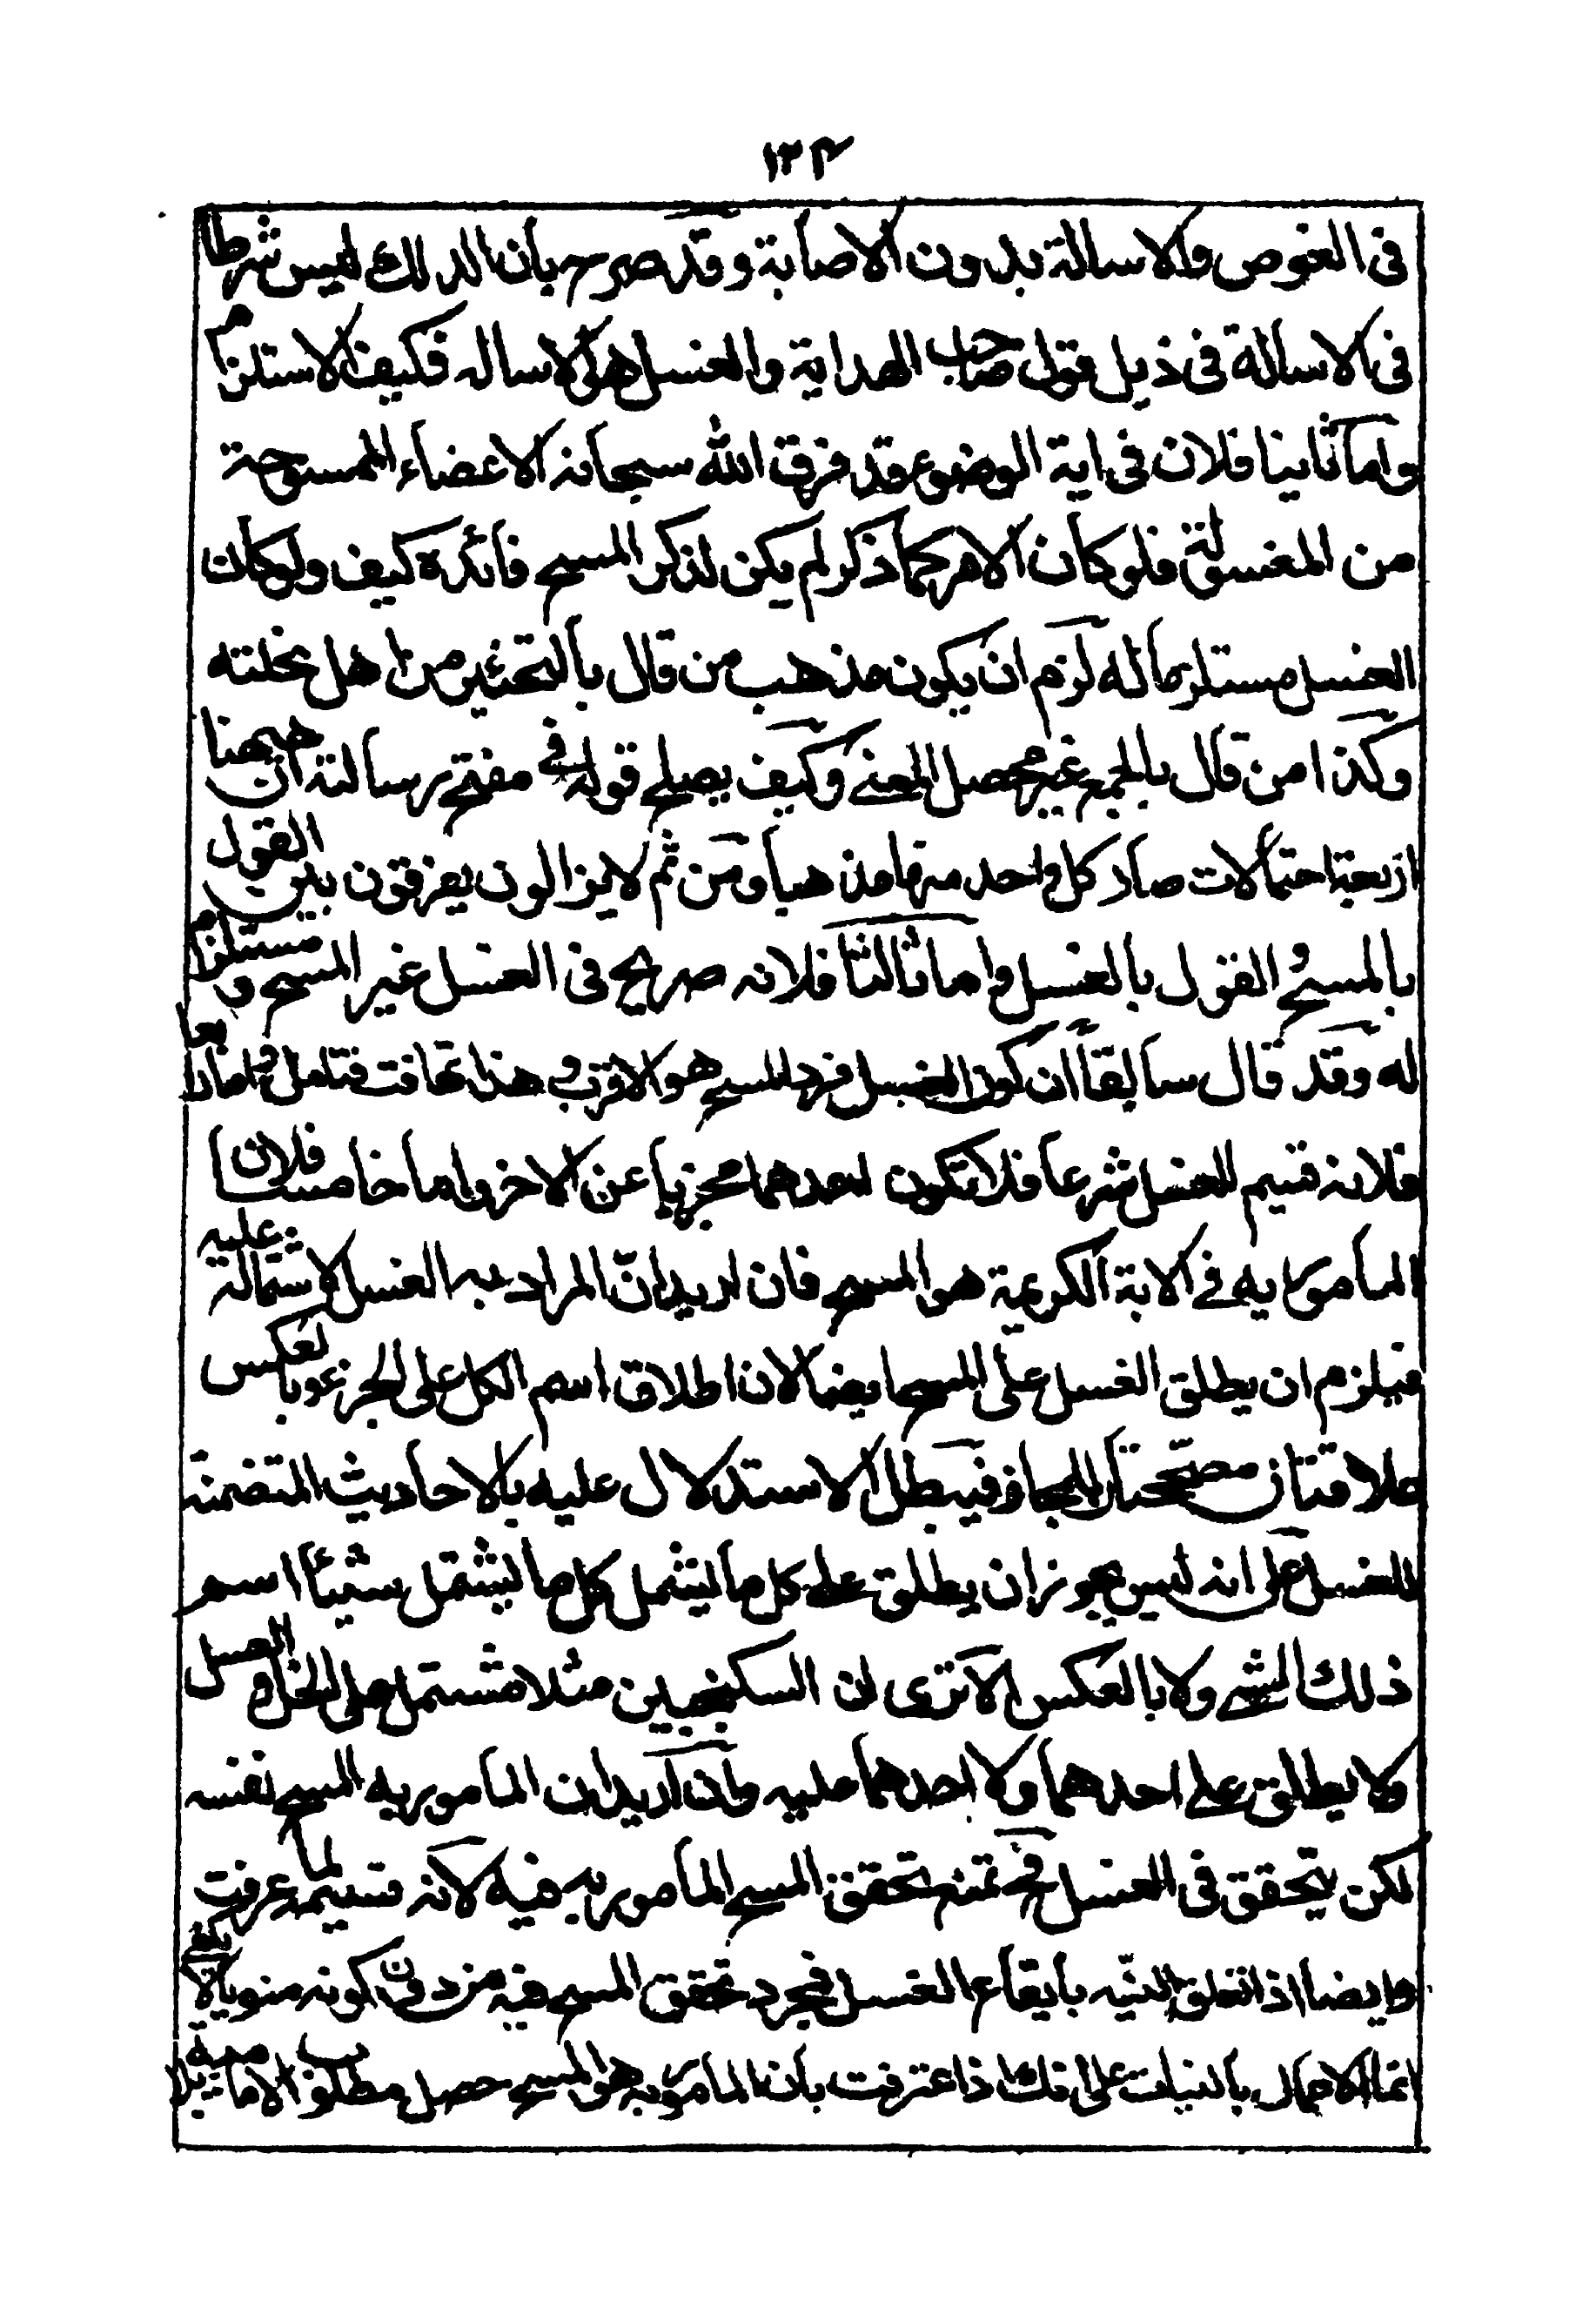 ١٣٤
فى الغوص والاسالة بدون الاصابة وقد صرح بان الدلك ليس شرطا
فى الاسالة فى ذيل قول صاحب الهداية والغسل هو الاساله فكيف الاستلزام
واما ثانيا فلان فى اية الوضوء قد فرق الله سبحانه الاعضاء الممسوحة
من المغسولة فلو كان الامر كما ذكر لم يكن لذكر المسح فائدة كيف ولو كان
الغسل مستلزما له لزم ان يكون مذهب من قال بالتخيير من اهل نحلته
وكذا من قال بالجمع غير محصل المعنے وكيف يصلح قوله فى مفتتح رسالته ان ههنا
اربعة احتمالات صار كل واحد منها مذهبا ومن ثم لا يزالون يفرقون بين القول
بالمسح والقول بالغسل واما ثالثا فلانه صريح فى الغسل غير المسح ومستلزم
له وقد قال سابقا ان كون الغسل فردا للمسح هو الاقرب وهذا تهافت فتامل واما رابعا
فلانه قسيم للغسل شرعا فلا تكون احدهما مجزيا عن الاخر واما خامسا فلان
المأمور به فے الاية الكريمة هو المسح فان اريد انّ المراد به الغسل لاشتماله عليه
فيلزم ان يطلق الغسل على المسح ايضا لان اطلاق اسم الكل على الجزء وبالعكس
علاقتان مصححتان للمجاز فيبطل الاستدلال عليه بالاحاديث المتضمنة
للغسل على انه ليس يجوز ان يطلق على كل ما يشمل كل ما يشمل شيئا اسم
ذلك الشے ولا بالعكس الا ترى ان السكنجبين مثلا مشتمل على الخل والعسل
ولا يطلق على احدهما ولا احدهما عليه وان اريد ان المامور به المسح نفسه
لكن يتحقق فى الغسل فح تمنع تحقق المسح المأمور به فيه لانه قسيم لما عرفت
وايضا اذا تعلق النيه بايقاع الغسل فمجرد تحقق المسح فيه من دون كونه منويا لا يكفى
انما الاعمال بالنيات على انك اذا عترفت بان المامور به هو المسح حصل مطلوب الامامية بلا